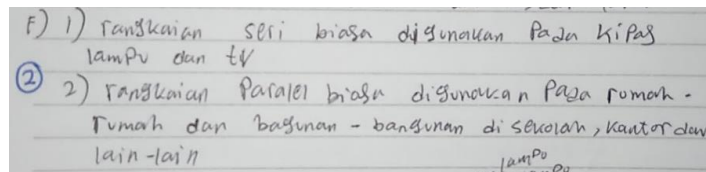 F) 1) rangkaian seri biasa digunakan Pada Kipas
lampu dan tv
2
2) rangkaian Paralel biasa digunakan Pada romah -
rumah dan bagunan - bangunan di sekolah, kantor dan
lain-lain
lampu